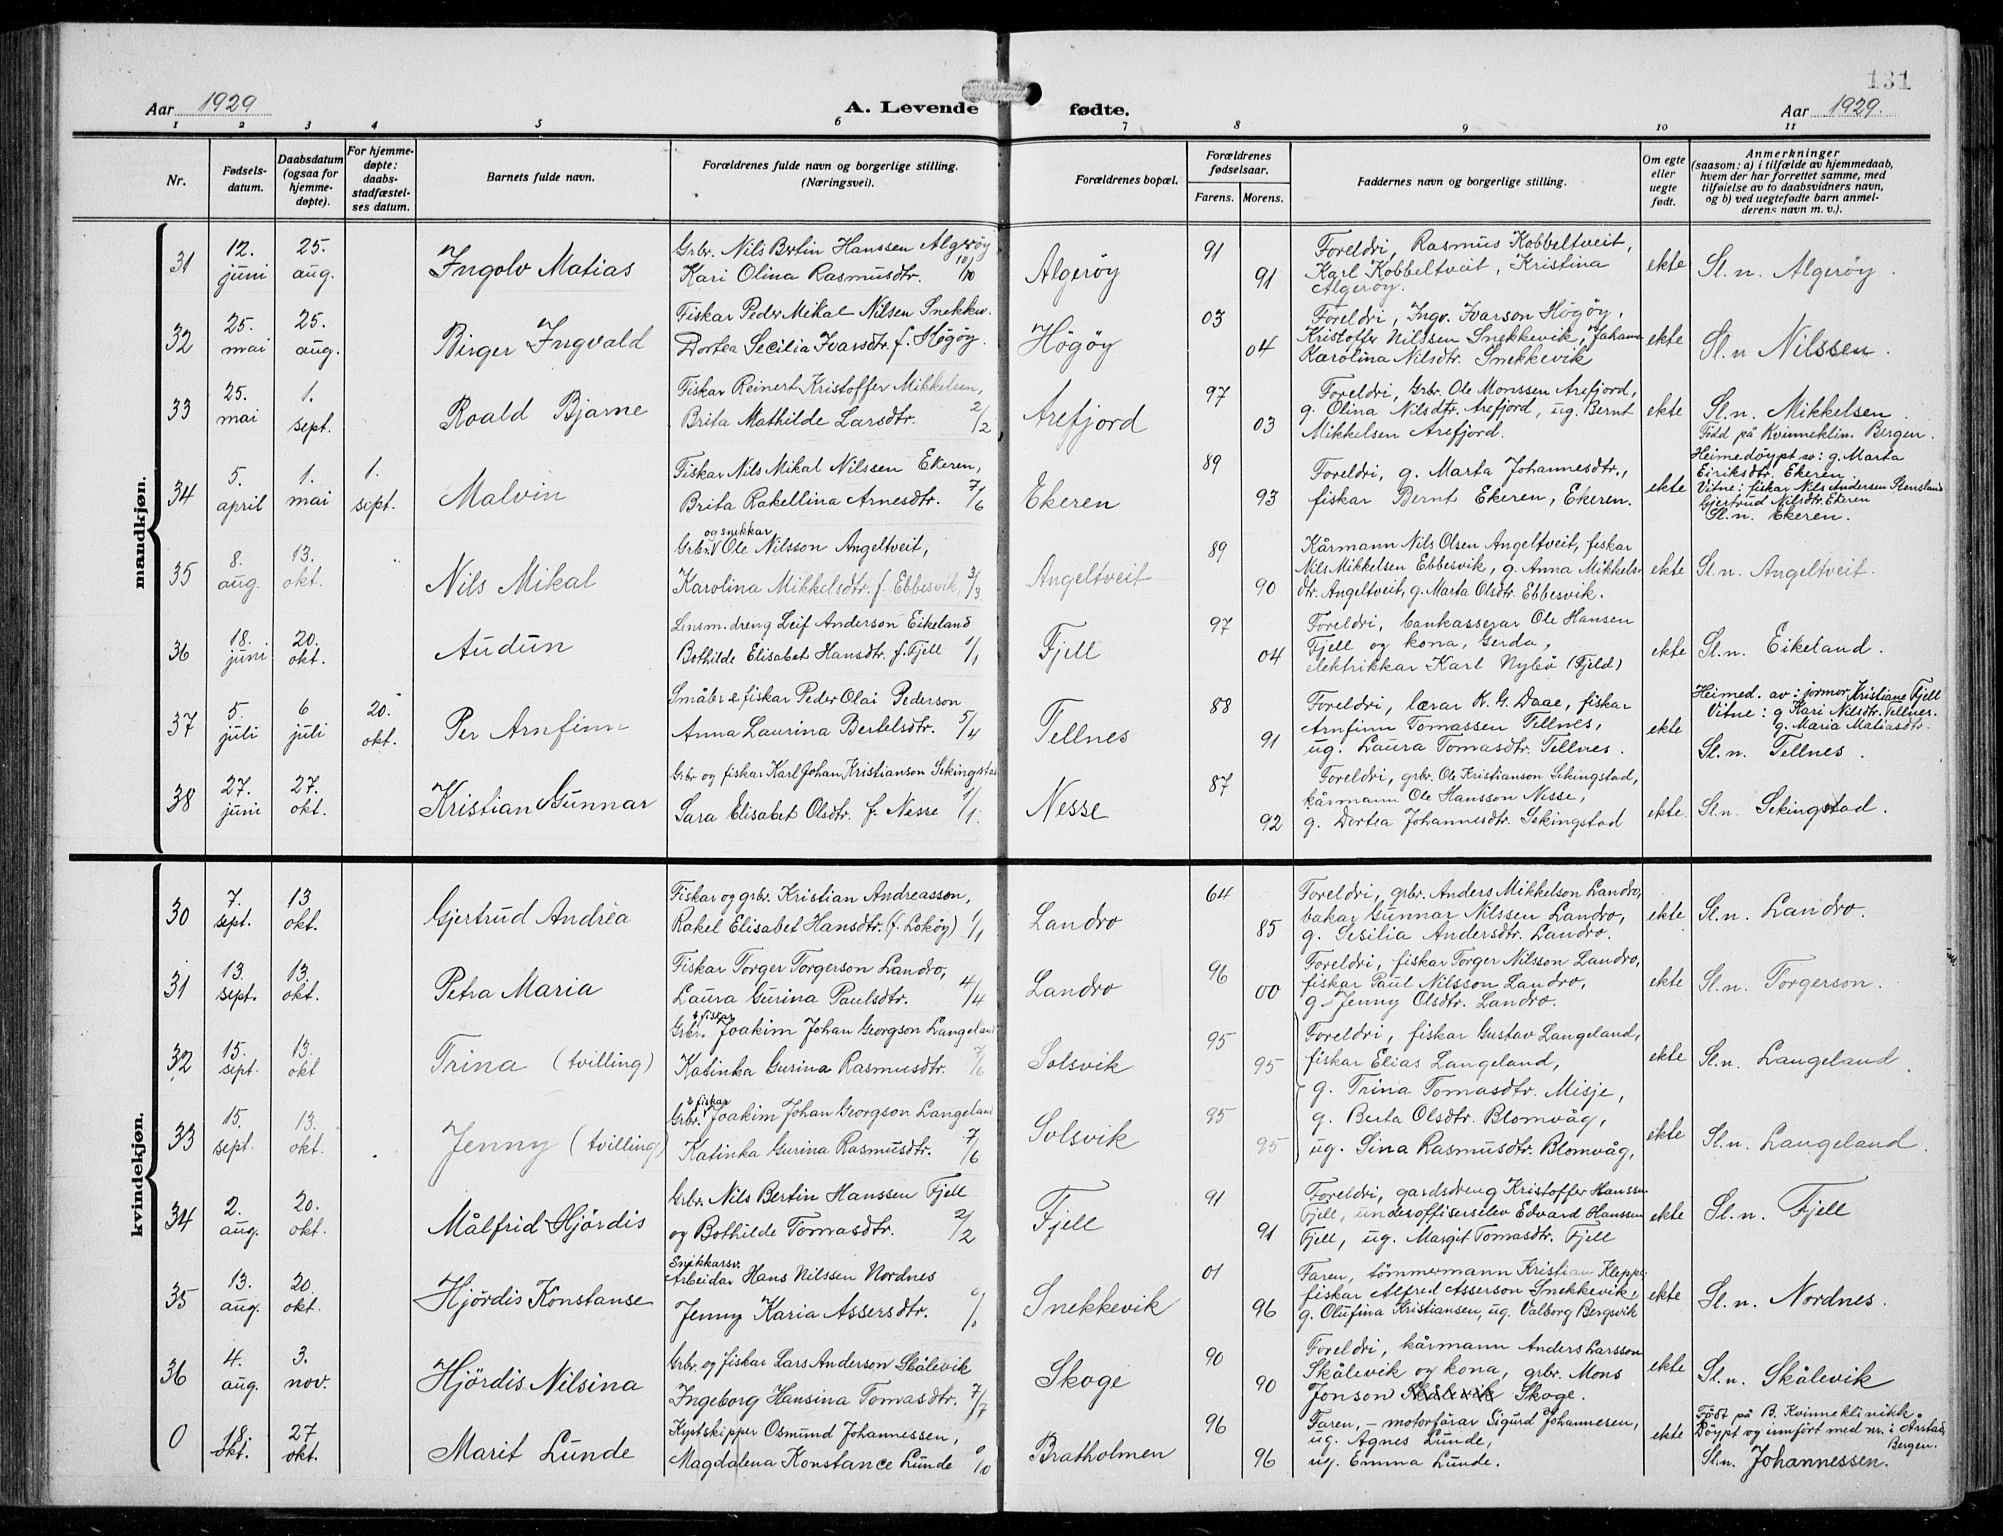 131
Aar 1929 A. Levende fødte. Aar 1929.
1 2 3 4 5 6 7 8 9 10 11
Nr.
Fødsels-
datum.
Daabsdatum
(ogsaa for
hjemme-
døpte).
For hjemme-
døpte:
daabs-
stadfæstel-
ses datum.
Barnets fulde navn.
Forældrenes fulde navn og borgerlige stilling.
(Næringsvei).
Forældrenes bopæl.
Forældrenes
fødselsaar.
Farens. Morens.
Faddernes navn og borgerlige stilling.
Om egte
eller
uegte
født.
Anmerkninger
(saasom: a) i tilfælde av hjemmedaab,
hvem der har forrettet samme, med
tilføielse av to daabsvidners navn,
og b) ved uegtefødte barn anmel-
derens navn m. v.).
mandkjøn.
31
12.
juni
25.
aug.
Ingolv Matias
Grbr. Nils Bertin Hanssen Algerøy
Kari Olina Rasmusdtr. 10/10
Algerøy
91
91
Foreldri, Rasmus Kobbeltveit,
Karl Kobbeltveit, Kristina
Algerøy.
ekte
Sl. n. Algerøy.
32
25.
mai
25.
aug.
Birger Ingvald
Fiskar Peder Mikal Nilsen Snekkev.
Dortea Secilia Ivarsdtr. f. Høgøy.
Høgøy
03
04
Foreldri, Ingv. Ivarson Høgøy,
Kristoffer Nilssen Snekkevik, Johanna
Karolina Nilsdtr. Snekkevik
ekte
Sl. n Nilssen.
33
25.
mai
1.
sept.
Roald Bjarne
Fiskar Reinert Kristoffer Mikkelsen,
Brita Mathilde Larsdtr. 2/2
Arefjord
97
03
Foreldri, Grbr. Ole Monssen Arefjord,
g. Olina Nilsdtr. Arefjord, ug. Bernt
Mikkelsen Arefjord.
ekte
Sl. n. Mikkelsen.
Fødd på Kvinneklin. Bergen.
34
5.
april
1.
mai
1.
sept.
Malvin
Fiskar Nils Mikal Nilssen Ekeren,
Brita Rakellina Arnesdtr. 7/6
Ekeren
89
93
Foreldri, g. Marta Johannesdtr.,
fiskar Bernt Ekeren, Ekeren.
ekte
Heimedøypt av: g. Marta
Eiriksdtr. Ekeren
Vitne: fiskar Nils Andersen
Gjertrud Nilsdtr. Ekeren
Sl. n. Ekeren.
35
8.
aug.
13.
okt.
Nils Mikal
og snikkar
Grbr. Ole Nilsson Angeltveit,
Karolina Mikkelsdtr. f. Ebbesvik, 3/3
Angeltveit
89
90
Kårmann Nils Olsen Angeltveit, fiskar
Nils Mikkelsen Ebbesvik, g. Anna Mikkels-
dtr. Angeltveit, g. Marta Olsdtr. Ebbesvik.
ekte
Sl. n. Angeltveit.
36
18.
juni
20.
okt.
Audun
Lensm. dreng Leif Anderson Eikeland
Bothilde Elisabet Hansdtr. f. Fjell 1/1
Fjell
97
04
Foreldri, bankasserar Ole Hansen
Fjell og kona, Gerda,
elektrikkar Karl Nybø (Fjeld)
ekte
Sl. n. Eikeland.
37
5.
juli
6
juli
20.
okt.
Per Arnfinn
Småbr & fiskar Peder Olai Pederson
Anna Laurina Bertelsdtr. 5/4
Tellnes
88
91
Foreldri, lærar K. G. Daae, fiskar
Arnfinn Tomassen Tellnes,
ug. Laura Tomasdtr. Tellnes.
ekte
Heimed. av: jormor Kristiane Fjell
Vitne: g Kari Nilsdtr. Tellnes.
g. Maria Matiasdtr.
Sl. n. Tellnes.
38
27.
juni
27.
okt.
Kristian Gunnar
Grbr og fiskar Karl Johan Kristianson Sekingstad
Sara Elisabet Olsdtr. f. Nesse 1/1.
Nesse
87
92
Foreldri, grbr. Ole Kristianson Sekingstad,
kårmann Ole Hansson Nesse,
g. Dortea Johannesdtr. Sekingstad
ekte.
Sl. n. Sekingstad.
kvindekjøn.
30
7.
sept.
13
okt.
Gjertrud Andrea
Fiskar og grbr. Kristian Andreasson,
Rakel Elisabet Hansdtr. (f. Lokøy) 1/1
Landro
64
85
Foreldri, grbr. Anders Mikkelson Landro,
bakar Gunnar Nilssen Landro,
g. Sesilia Andersdtr. Landro.
ekte
Sl. n. Landro.
31
13.
sept.
13.
okt.
Petra Maria
Fiskar Torger Torgerson Landro,
Laura Gurina Paulsdtr. 4/4
Landro
96
00
Foreldri, fiskar Torger Nilsson Landro,
fiskar Paul Nilsson Landro,
g. Jenny Olsdtr. Landro.
ekte
Sl. n. Torgerson.
32
15.
sept.
13.
okt
Trina (tvilling)
& fiskar
Grbr. Joakim Johan Georgson Langeland
Katinka Gurina Rasmusdtr. 7/6
Solsvik
95
95
Foreldri, fiskar Gustav Langeland,
fiskar Elias Langeland,
g. Trina Tomasdtr. Misje,
ekte
Sl. n. Langeland
33
15.
sept.
13.
okt.
Jenny (tvilling)
& fiskar
Grbr. Joakim Johan Georgson Langeland
Katinka Gurina Rasmusdtr. 7/6
Solsvik
95
95
g. Berta Olsdtr. Blomvåg,
ug. Sina Rasmusdtr. Blomvåg,
ekte
Sl. n. Langeland.
34
2.
aug.
20.
okt.
Målfrid Hjördis
Grbr. Nils Bertin Hanssen Fjell
og Bothilde Tomasdtr. 2/2
Fjell
91
91
Foreldri, gardsdreng Kristoffer Hanssen
Fjell, underoffiserselev Edvard Hanssen
Fjell, ug. Margit Tomasdtr. Fjell
ekte
Sl. n. Fjell
35
13.
aug.
20.
okt.
Hjördis Konstanse
Snikkarsv.
Arbeidar Hans Nilssen Nordnes
Jenny Karia Assersdtr. 0/0
Snekkevik
01
96
Faren, tømmermann Kristian Kleppe
fiskar Alfred Asserson Snekkevik,
g. Olufina Kristiansen, ug. Valborg Bergsvik
ekte
Sl. n. Nordnes.
36
4.
aug.
3.
nov.
Hjördis Nilsina
Grbr. og fiskar Lars Anderson Skålevik
Ingeborg Hansina Tomasdtr. 7/7
Skoge
90
90
Foreldri, kårmann Anders Larsson
Skålevik og kona, grbr. Mons
Jonson Skålevik Skoge.
ekte
Sl. n. Skålevik
0
18.
okt.
27
okt.
Marit Lunde
Kystskipper Osmund Johannessen,
Magdalena Konstance Lunde 0/0
Bratholmen
96
96
Faren, – motorførar Sigurd Johannesen,
ug. Agnes Lunde,
ug. Emma Lunde.
ekte
Født på B. Kvinneklinikk.
Døypt og innført med nr. i Årstad,
Bergen.
Sl. n. Johannessen.